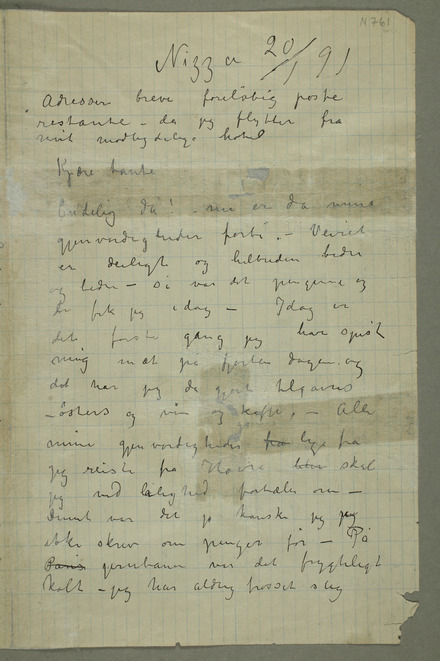 N 761
Nizza 20/1 91
Adresser breve foreløbig poste
restante – da jeg flytter fra
mit modbydelige hotel
Kjære tante
Endelig da! – nu er da mine
gjenvordigheder forbi. – Veiret
er deiligt og helbreden bedre
og bedre – så var det pengene og
de fik jeg idag – Idag er
det første gang jeg har spist
mig mæt på fjorten dage og
det har jeg da gjort tilgavns
– østers og vin og kaffe. – Alle
mine gjenvordigheder fra lige fra
jeg reiste fra Havre skal
jeg ved leilighed fortælle om –
Dumt var det jo kanske jeg jeg
ikke skrev om penger før – På
Paris jernbanen var det frygteligt
koldt – jeg har aldrig frosset slig